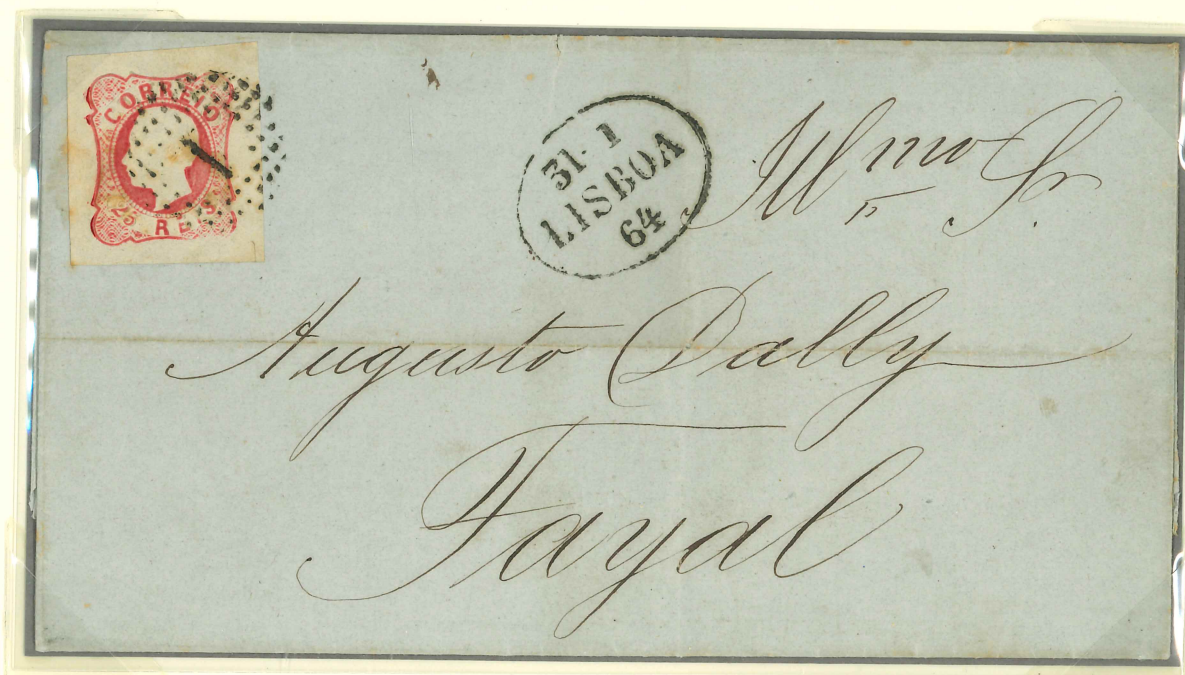 CORREIO
1
25 REIS
31·1
LISBOA
64
Illmo Sr.
Augusto Dally
Fayal